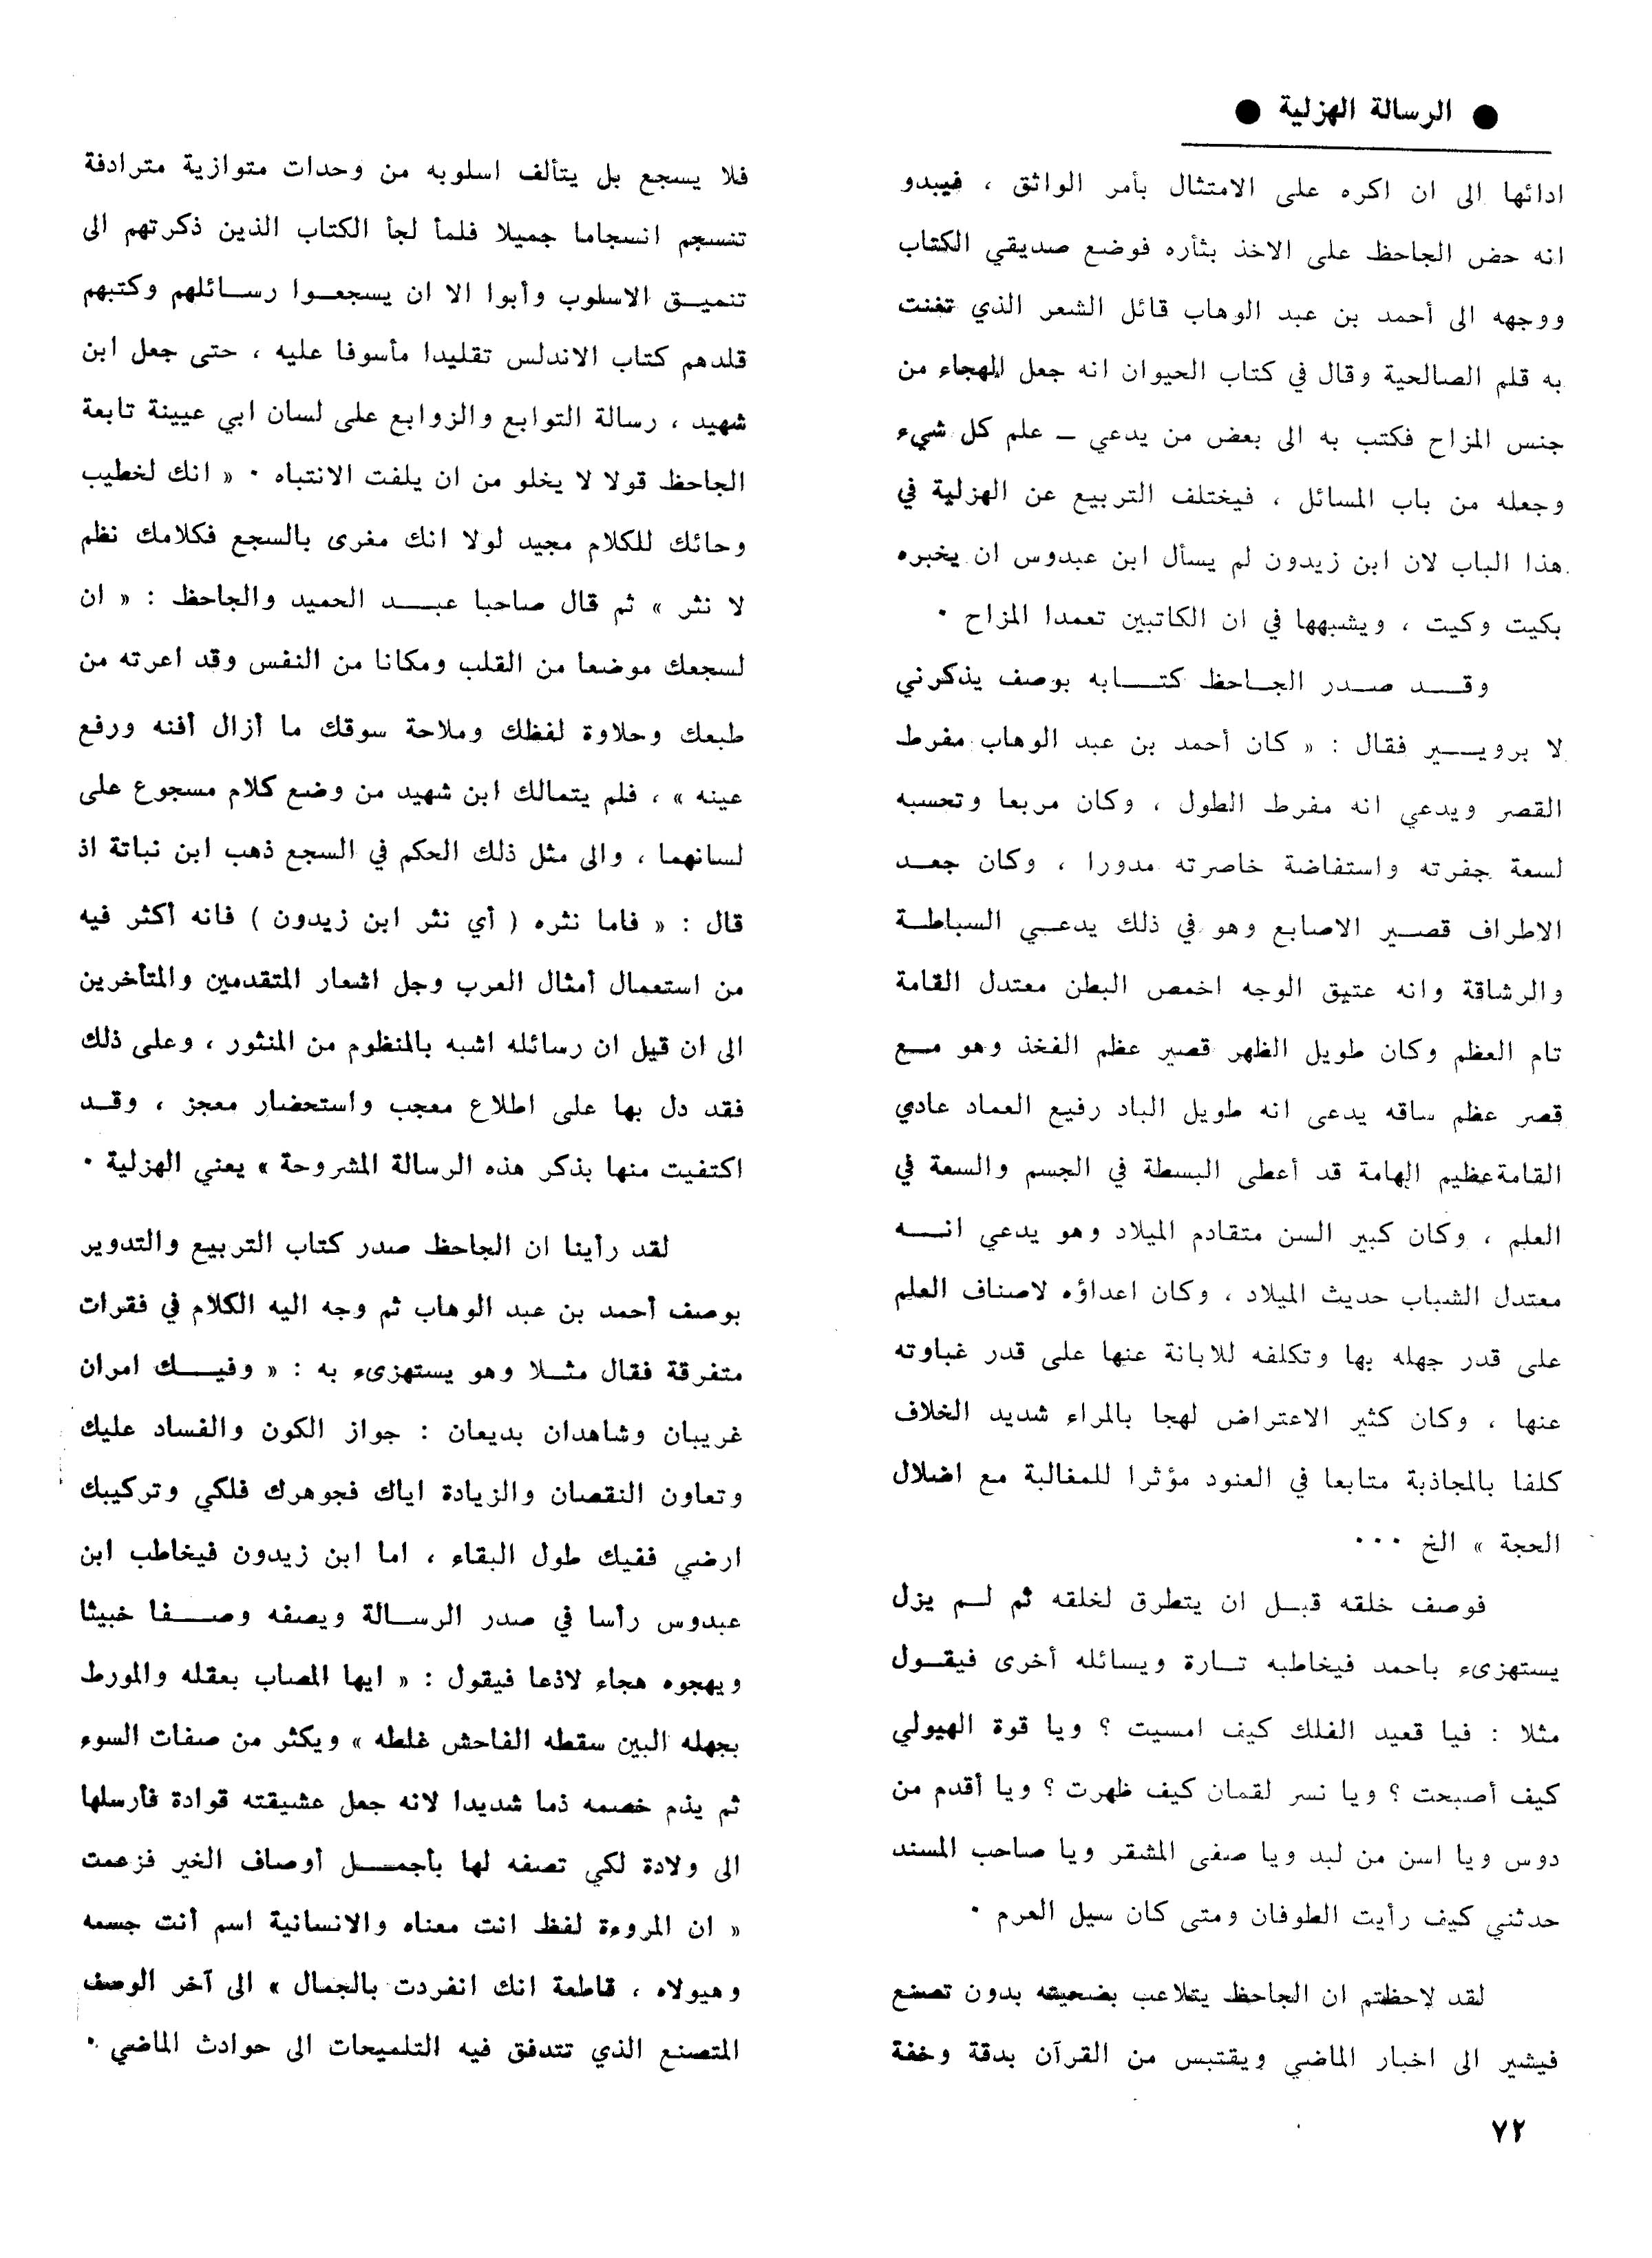 ● الرسالة الهزلية ●
ادائها الى ان اكره على الامتثال بأمر الواثق ، فيبدو
انه حض الجاحظ على الاخذ بثأره فوضع صديقي الكتاب
ووجهه الى أحمد بن عبد الوهاب قائل الشعر الذي تغنت
به قلم الصالحية وقال في كتاب الحيوان انه جعل الهجاء من
جنس المزاح فكتب به الى بعض من يدعي – علم كل شيء
وجعله من باب المسائل ، فيختلف التربيع عن الهزلية في
هذا الباب لان ابن زيدون لم يسأل ابن عبدوس ان يخبره
بكيت وكيت ، ويشبهها في ان الكاتبين تعمدا المزاح ٠
وقد صدر الجاحظ كتابه بوصف يذكرني
لا برويير فقال : « كان أحمد بن عبد الوهاب مفرط
القصر ويدعي انه مفرط الطول ، وكان مربعا وتحسبه
لسعة جفرته واستفاضة خاصرته مدورا ، وكان جعد
الاطراف قصير الاصابع وهو في ذلك يدعي السباطة
والرشاقة وانه عتيق الوجه اخمص البطن معتدل القامة
تام العظم وكان طويل الظهر قصير عظم الفخذ وهو مع
قصر عظم ساقه يدعى انه طويل الباد رفيع العماد عادي
القامة عظيم الهامة قد أعطى البسطة في الجسم والسعة في
العلم ، وكان كبير السن متقادم الميلاد وهو يدعي انه
معتدل الشباب حديث الميلاد ، وكان اعداؤه لاصناف العلم
على قدر جهله بها وتكلفه للابانة عنها على قدر غباوته
عنها ، وكان كثير الاعتراض لهجا بالمراء شديد الخلاف
كلفا بالمجاذبة متابعا في العنود مؤثرا للمغالبة مع اضلال
الحجة » الخ ٠٠٠
فوصف خلقه قبل ان يتطرق لخلقه ثم لم يزل
يستهزىء باحمد فيخاطبه تارة ويسائله أخرى فيقول
مثلا : فيا قعيد الفلك كيف امسيت ؟ ويا قوة الهيولي
كيف أصبحت ؟ ويا نسر لقمان كيف ظهرت ؟ ويا أقدم من
دوس ويا اسن من لبد ويا صفى المشقر ويا صاحب المسند
حدثني كيف رأيت الطوفان ومتى كان سيل العرم ٠
لقد لاحظتم ان الجاحظ يتلاعب بضحيته بدون تصنع
فيشير الى اخبار الماضي ويقتبس من القرآن بدقة وخفة
فلا يسجع بل يتألف اسلوبه من وحدات متوازية مترادفة
تنسجم انسجاما جميلا فلمأ لجأ الكتاب الذين ذكرتهم الى
تنميق الاسلوب وأبوا الا ان يسجعوا رسائلهم وكتبهم
قلدهم كتاب الاندلس تقليدا مأسوفا عليه ، حتى جعل ابن
شهيد ، رسالة التوابع والزوابع على لسان ابي عيينة تابعة
الجاحظ قولا لا يخلو من ان يلفت الانتباه ٠ « انك لخطيب
وحائك للكلام مجيد لولا انك مغرى بالسجع فكلامك نظم
لا نثر » ثم قال صاحبا عبد الحميد والجاحظ : « ان
لسجعك موضعا من القلب ومكانا من النفس وقد اعرته من
طبعك وحلاوة لفظك وملاحة سوقك ما أزال أفنه ورفع
عينه » ، فلم يتمالك ابن شهيد من وضع كلام مسجوع على
لسانهما ، والى مثل ذلك الحكم في السجع ذهب ابن نباتة اذ
قال : « فاما نثره ( أي نثر ابن زيدون ) فانه أكثر فيه
من استعمال أمثال العرب وجل اشعار المتقدمين والمتأخرين
الى ان قيل ان رسائله اشبه بالمنظوم من المنثور ، وعلى ذلك
فقد دل بها على اطلاع معجب واستحضار معجز ، وقد
اكتفيت منها بذكر هذه الرسالة المشروحة » يعني الهزلية ٠
لقد رأينا ان الجاحظ صدر كتاب التربيع والتدوير
بوصف أحمد بن عبد الوهاب ثم وجه اليه الكلام في فقرات
متفرقة فقال مثلا وهو يستهزىء به : « وفيك امران
غريبان وشاهدان بديعان : جواز الكون والفساد عليك
وتعاون النقصان والزيادة اياك فجوهرك فلكي وتركيبك
ارضي ففيك طول البقاء ، اما ابن زيدون فيخاطب ابن
عبدوس رأسا في صدر الرسالة ويصفه وصفا خبيثا
ويهجوه هجاء لاذعا فيقول : « ايها المصاب بعقله والمورط
بجهله البين سقطه الفاحش غلطه » ويكثر من صفات السوء
ثم يذم خصمه ذما شديدا لانه جعل عشيقته قوادة فأرسلها
الى ولادة لكي تصفه لها بأجمل أوصاف الخير فزعمت
« ان المروءة لفظ انت معناه والانسانية اسم أنت جسمه
وهيولاه ، قاطعة انك انفردت بالجمال » الى آخر الوصف
المتصنع الذي تتدفق فيه التلميحات الى حوادث الماضي ٠
٧٢